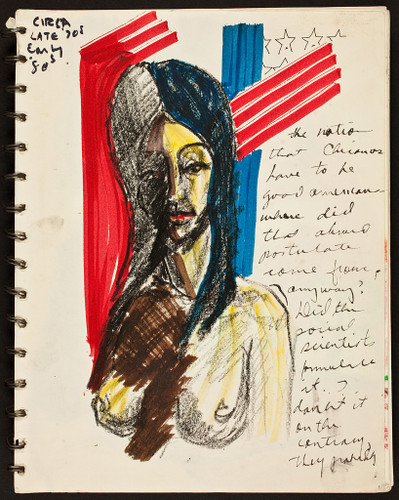 CIRCA
LATE 70s
Early
80s.
the notion
that Chicanos
have to be
good americans
where did
that absurd
postulate
come from,
anyway?
Did the
social
scientists
formulate
it?
on the
contrary,
they